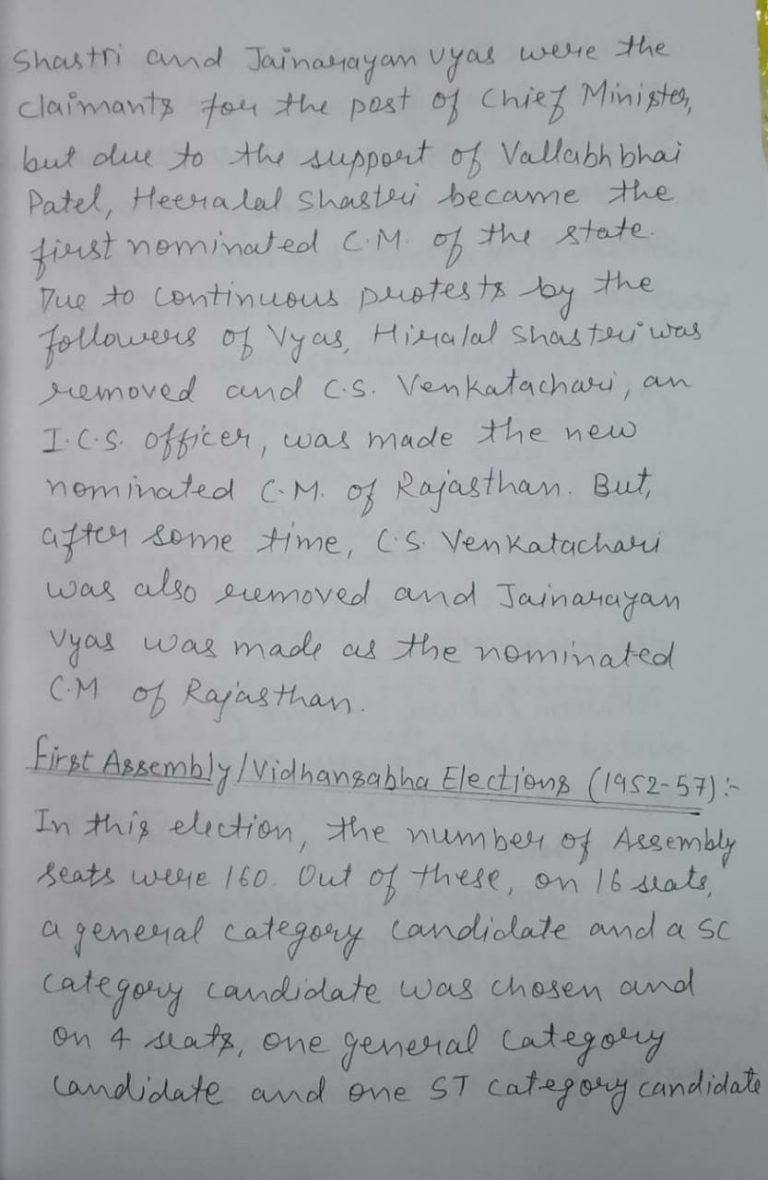 Shastri and Jainarayan Vyas were the
claimants for the post of Chief Minister,
but due to the support of Vallabhbhai
Patel, Heeralal Shastri became the
first nominated C.M. of the state.
Due to continuous protests by the
followers of Vyas, Hiralal Shastri was
removed and C.S. Venkatachari, an
I.C.S. officer, was made the new
nominated C.M. of Rajasthan. But,
after some time, C.S. Venkatachari
was also removed and Jainarayan
Vyas was made as the nominated
C.M of Rajasthan.
First Assembly/Vidhansabha Elections (1952-57):-
In this election, the number of Assembly
seats were 160. Out of these, on 16 seats,
a general category candidate and a SC
category candidate was chosen and
on 4 seats, one general category
candidate and one ST category candidate